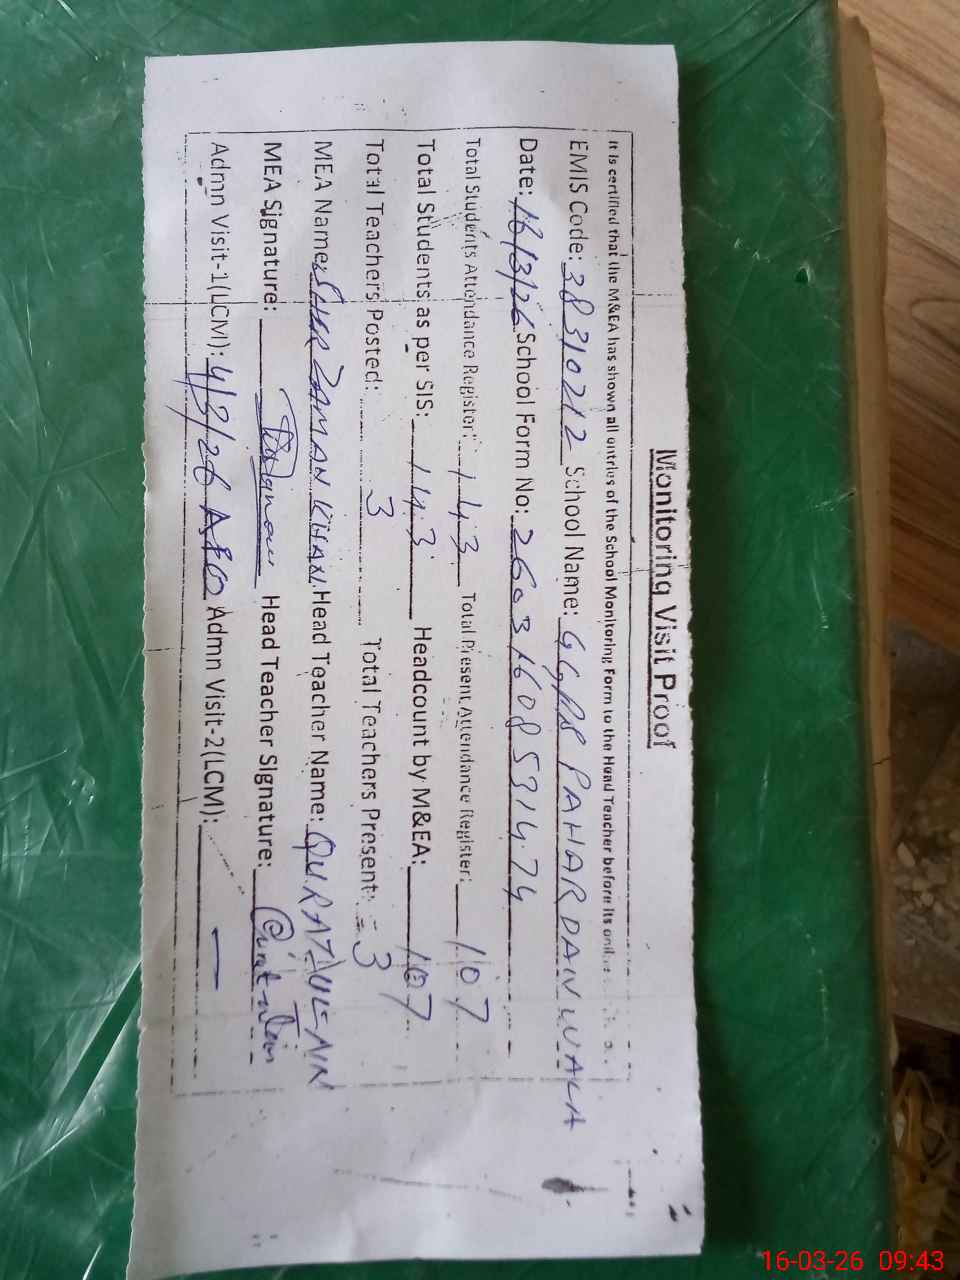 Monitoring Visit Proof
It is certified that the M&EA has shown all entries of the School Monitoring Form to the Head Teacher before its
EMIS Code: 38310212 School Name: GGPS PAHAR DAN WALA
Date: 16/3/26 School Form No: 26031608531474
Total Students Attendance Register: 143 Total Present Attendance Register: 107
Total Students as per SIS: 143 Headcount by M&EA: 107
Total Teachers Posted: 3 Total Teachers Present: 3
MEA Name: SHER ZAMAN KHAN Head Teacher Name: QURATULEAIN
MEA Signature: Head Teacher Signature:
Admn Visit-1(LCM): 4/3/26 AEO Admn Visit-2(LCM): —
16-03-26 09:43